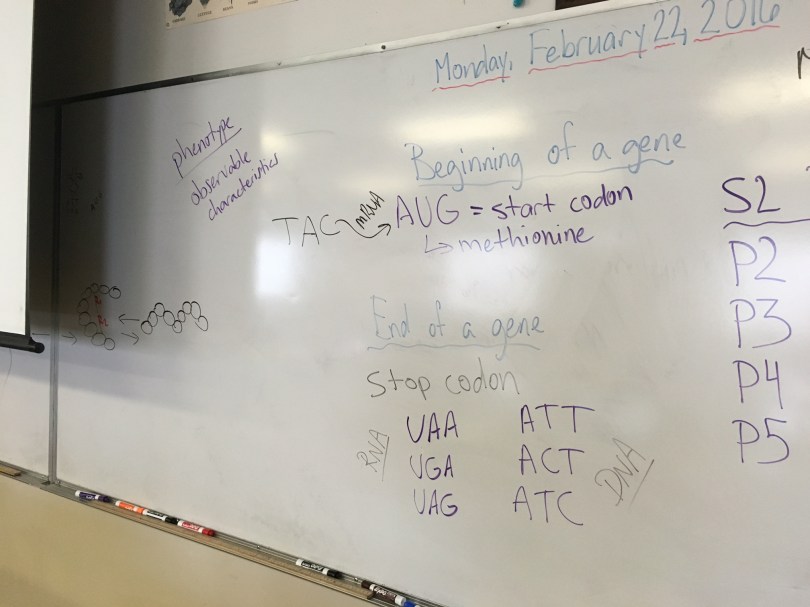 Monday, February 22, 2016
phenotype
observable
characteristics
Beginning of a gene
TAC mRNA AUG = start codon
methionine
End of a gene
Stop codon
RNA
UAA ATT
UGA ACT
UAG ATC
DNA
S2
P2
P3
P4
P5